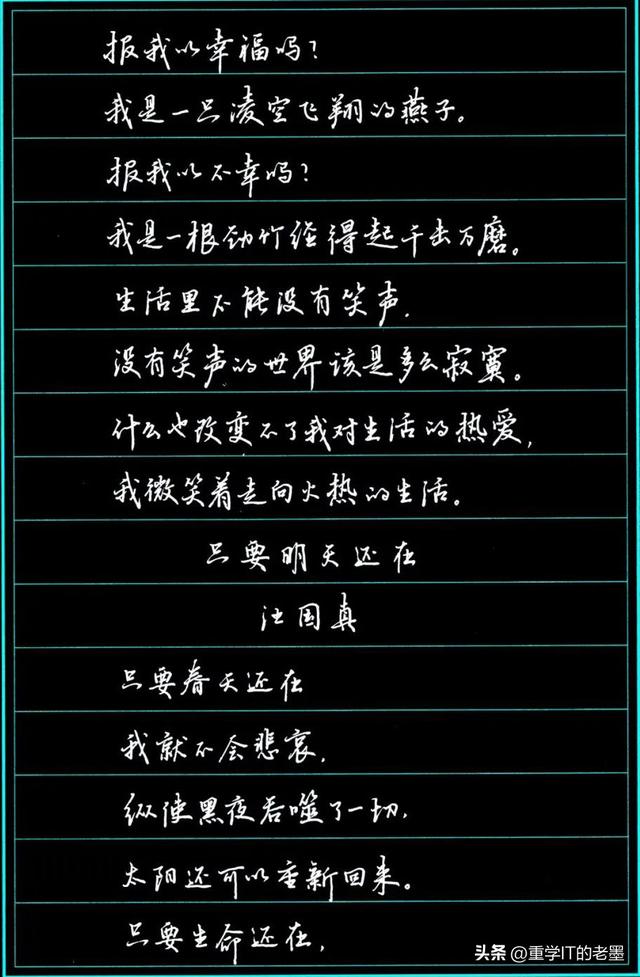 报我以幸福吗？
我是一只凌空飞翔的燕子。
报我以不幸吗？
我是一根劲竹经得起千击万磨。
生活里不能没有笑声，
没有笑声的世界该是多么寂寞。
什么也改变不了我对生活的热爱，
我微笑着走向火热的生活。
只要明天还在
汪国真
只要春天还在
我就不会悲哀，
纵使黑夜吞噬了一切，
太阳还可以重新回来。
只要生命还在，
头条 @重学IT的老墨